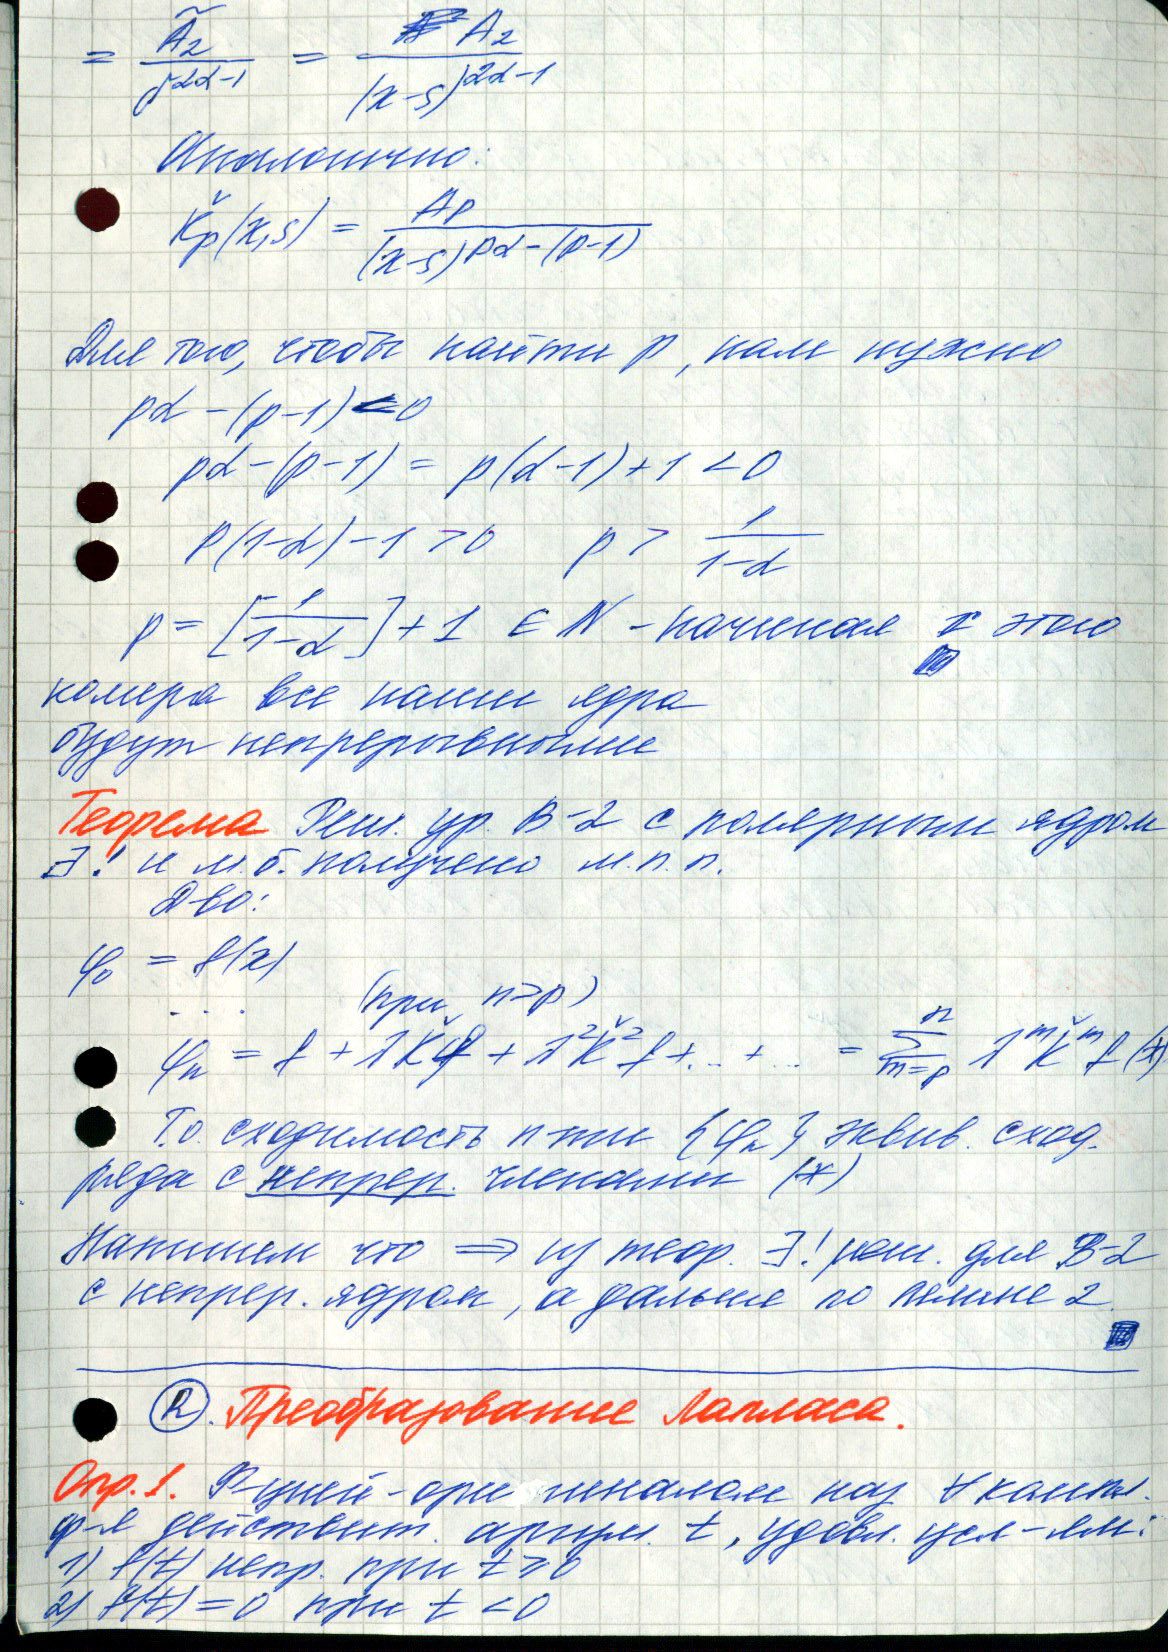 = Ã₂ / J^{2α-1} = A₂ / (x-s)^{2α-1}
Аналогично:
Ǩ_p(x,s) = A_p / (x-s)^{pα-(p-1)}
Для того, чтобы найти p, нам нужно
pα-(p-1) < 0
pα-(p-1) = p(α-1)+1 < 0
p(1-α)-1 > 0 p > 1/(1-α)
p = [1/(1-α)] + 1 ∈ N - начиная с этого
номера все наши ядра
будут непрерывными
Теорема Реш. ур. В-2 с полярным ядром
∃! и м.б. получено м.п.п.
Д-во:
φ₀ = f(x)
... (при n>p)
φ_n = f + λǨf + λ²Ǩ²f + ... + ... = ∑_{m=p}^{n} λ^m Ǩ^m f (*)
Т.о. сходимость п-ти {φ_n} эквив. сход.
ряда с непрер. членами (*)
Напишем что ⇒ из теор. ∃! реш. для В-2
с непрер. ядром, а дальше по лемме 2.
2. Преобразование Лапласа.
Опр.1. Ф-цией-оригиналом наз ∀ компл.
ф-я действит. аргум. t, удовл. усл-ям:
1) f(t) непр. при t ≥ 0
2) f(t) = 0 при t < 0